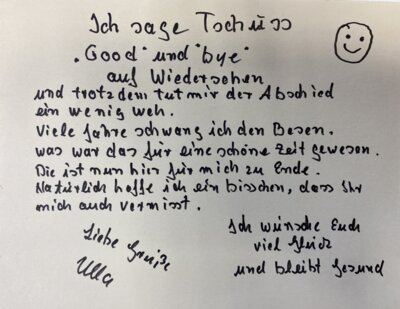 Ich sage Tschüss
"Good" und "bye"
auf Wiedersehen
und trotzdem tut mir der Abschied
ein wenig weh.
Viele Jahre schwang ich den Besen,
was war das für eine schöne Zeit gewesen.
Die ist nun hier für mich zu Ende.
Natürlich hoffe ich ein bisschen, dass Ihr
mich auch vermisst.
Liebe Grüße
Ulla
Ich wünsche Euch
viel Glück
und bleibt Gesund